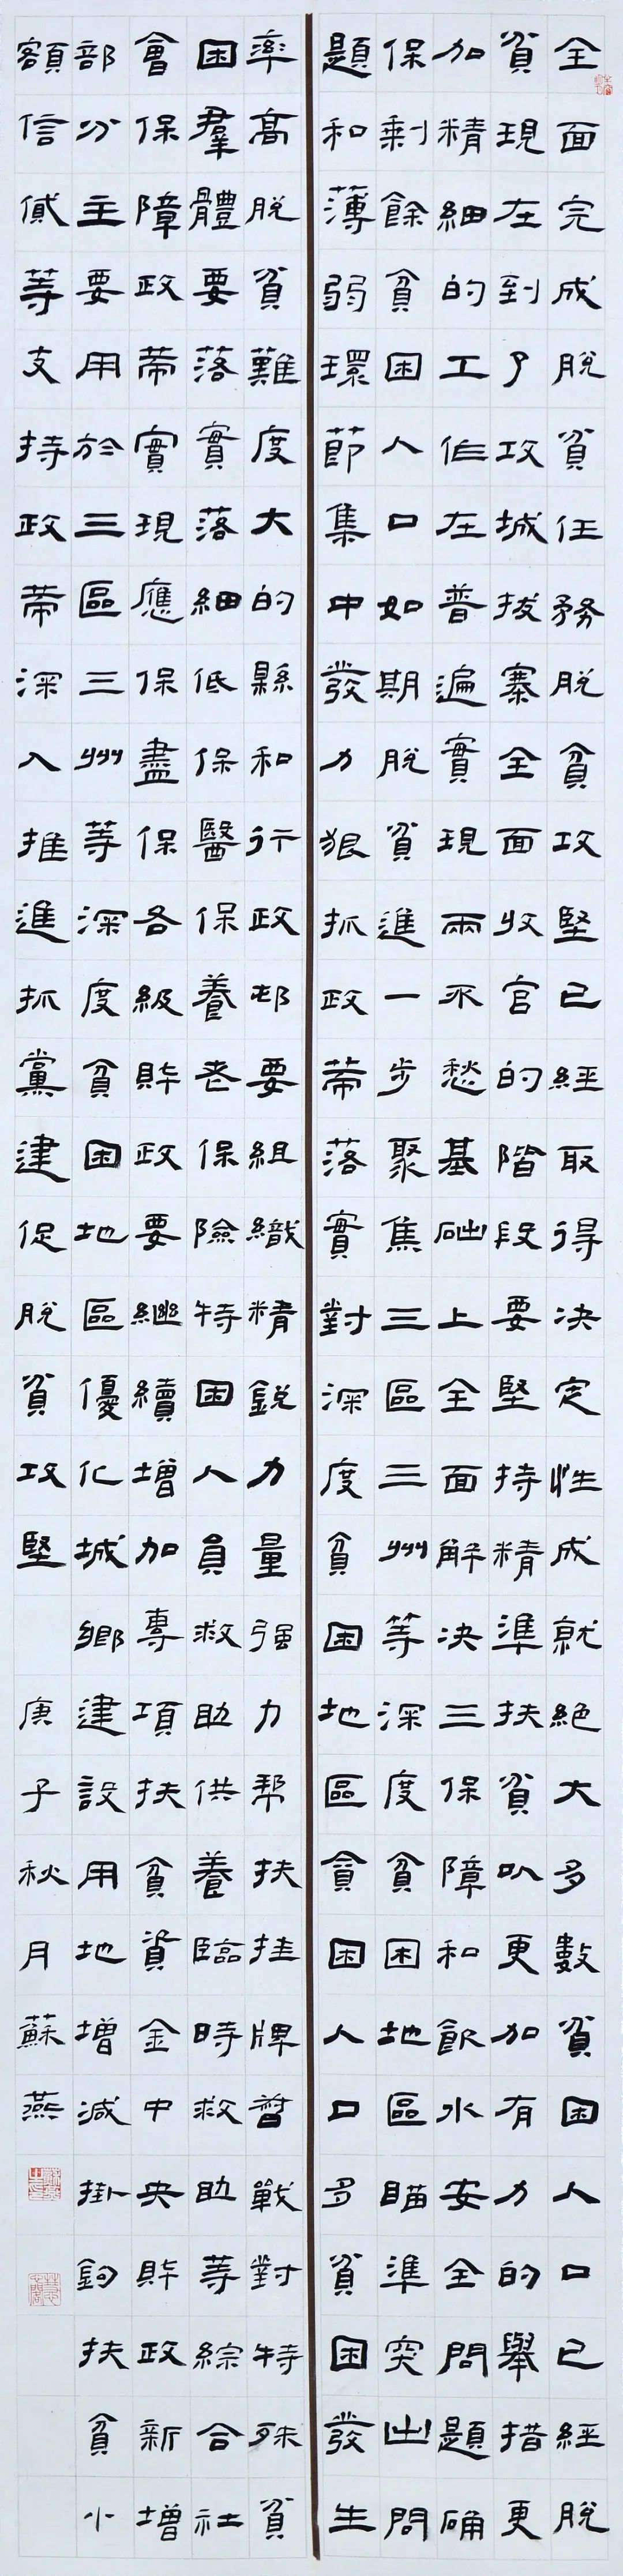 全面完成脫貧任務脫貧攻堅已經取得决定性成就絕大多數貧困人口已經脫
貧現在到了攻城拔寨全面收官的階段要堅持精準扶貧以更加有力的舉措更
加精細的工作在普遍實現兩不愁基础上全面解决三保障和飲水安全問題确
保剩餘貧困人口如期脫貧進一步聚焦三區三州等深度貧困地區瞄準突出問
題和薄弱環節集中發力狠抓政策落實對深度貧困地區貧困人口多貧困發生
率高脫貧難度大的縣和行政邨要組織精銳力量强力帮扶挂牌督戰對特殊貧
困羣體要落實落細低保醫保養老保險特困人員救助供養臨時救助等綜合社
會保障政策實現應保盡保各級財政要繼續增加專項扶貧資金中央財政新增
部分主要用於三區三州等深度貧困地區優化城鄉建設用地增減掛鉤扶貧小
額信貸等支持政策深入推進抓黨建促脫貧攻堅 庚子秋月蘇燕